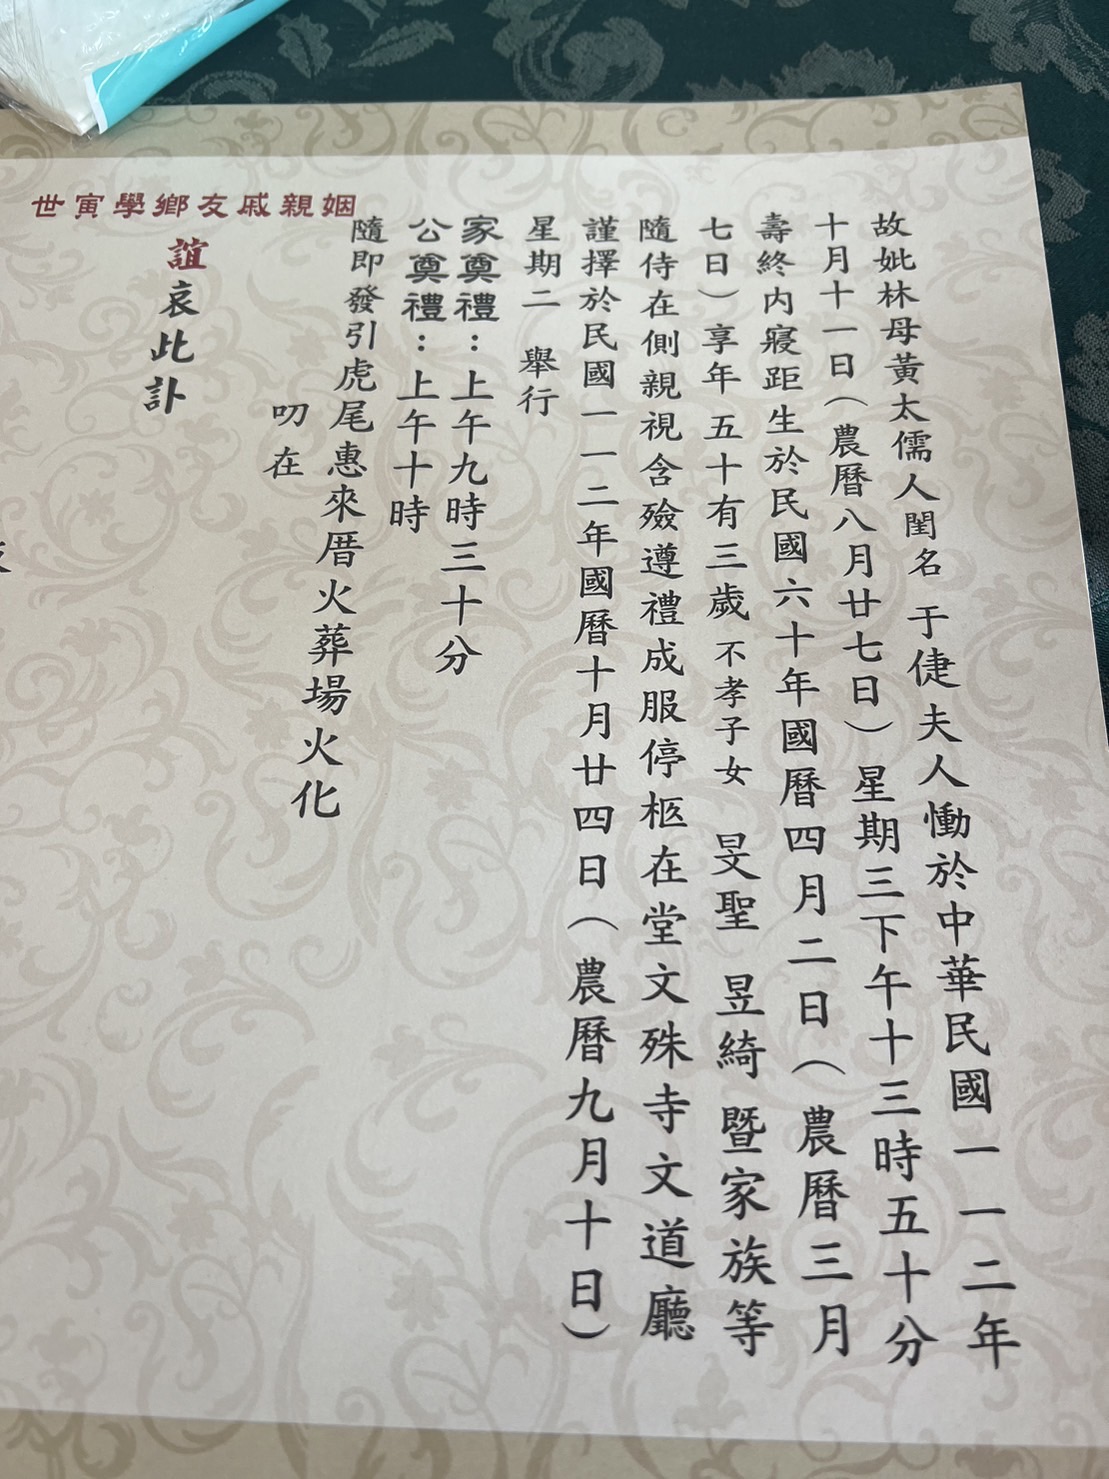 故妣林母黃太儒人閨名 于倢夫人慟於中華民國一一二年
十月十一日（農曆八月廿七日）星期三下午十三時五十分
壽終內寢距生於民國六十年國曆四月二日（農曆三月
七日）享年五十有三歲 不孝子女 旻聖 昱綺 暨家族等
隨侍在側親視含殮遵禮成服停柩在堂文殊寺文道廳
謹擇於民國一一二年國曆十月廿四日（農曆九月十日）
星期二 舉行
家奠禮：上午九時三十分
公奠禮：上午十時
隨即發引虎尾惠來厝火葬場火化
叨在
姻親戚友鄉學寅世
誼哀此訃